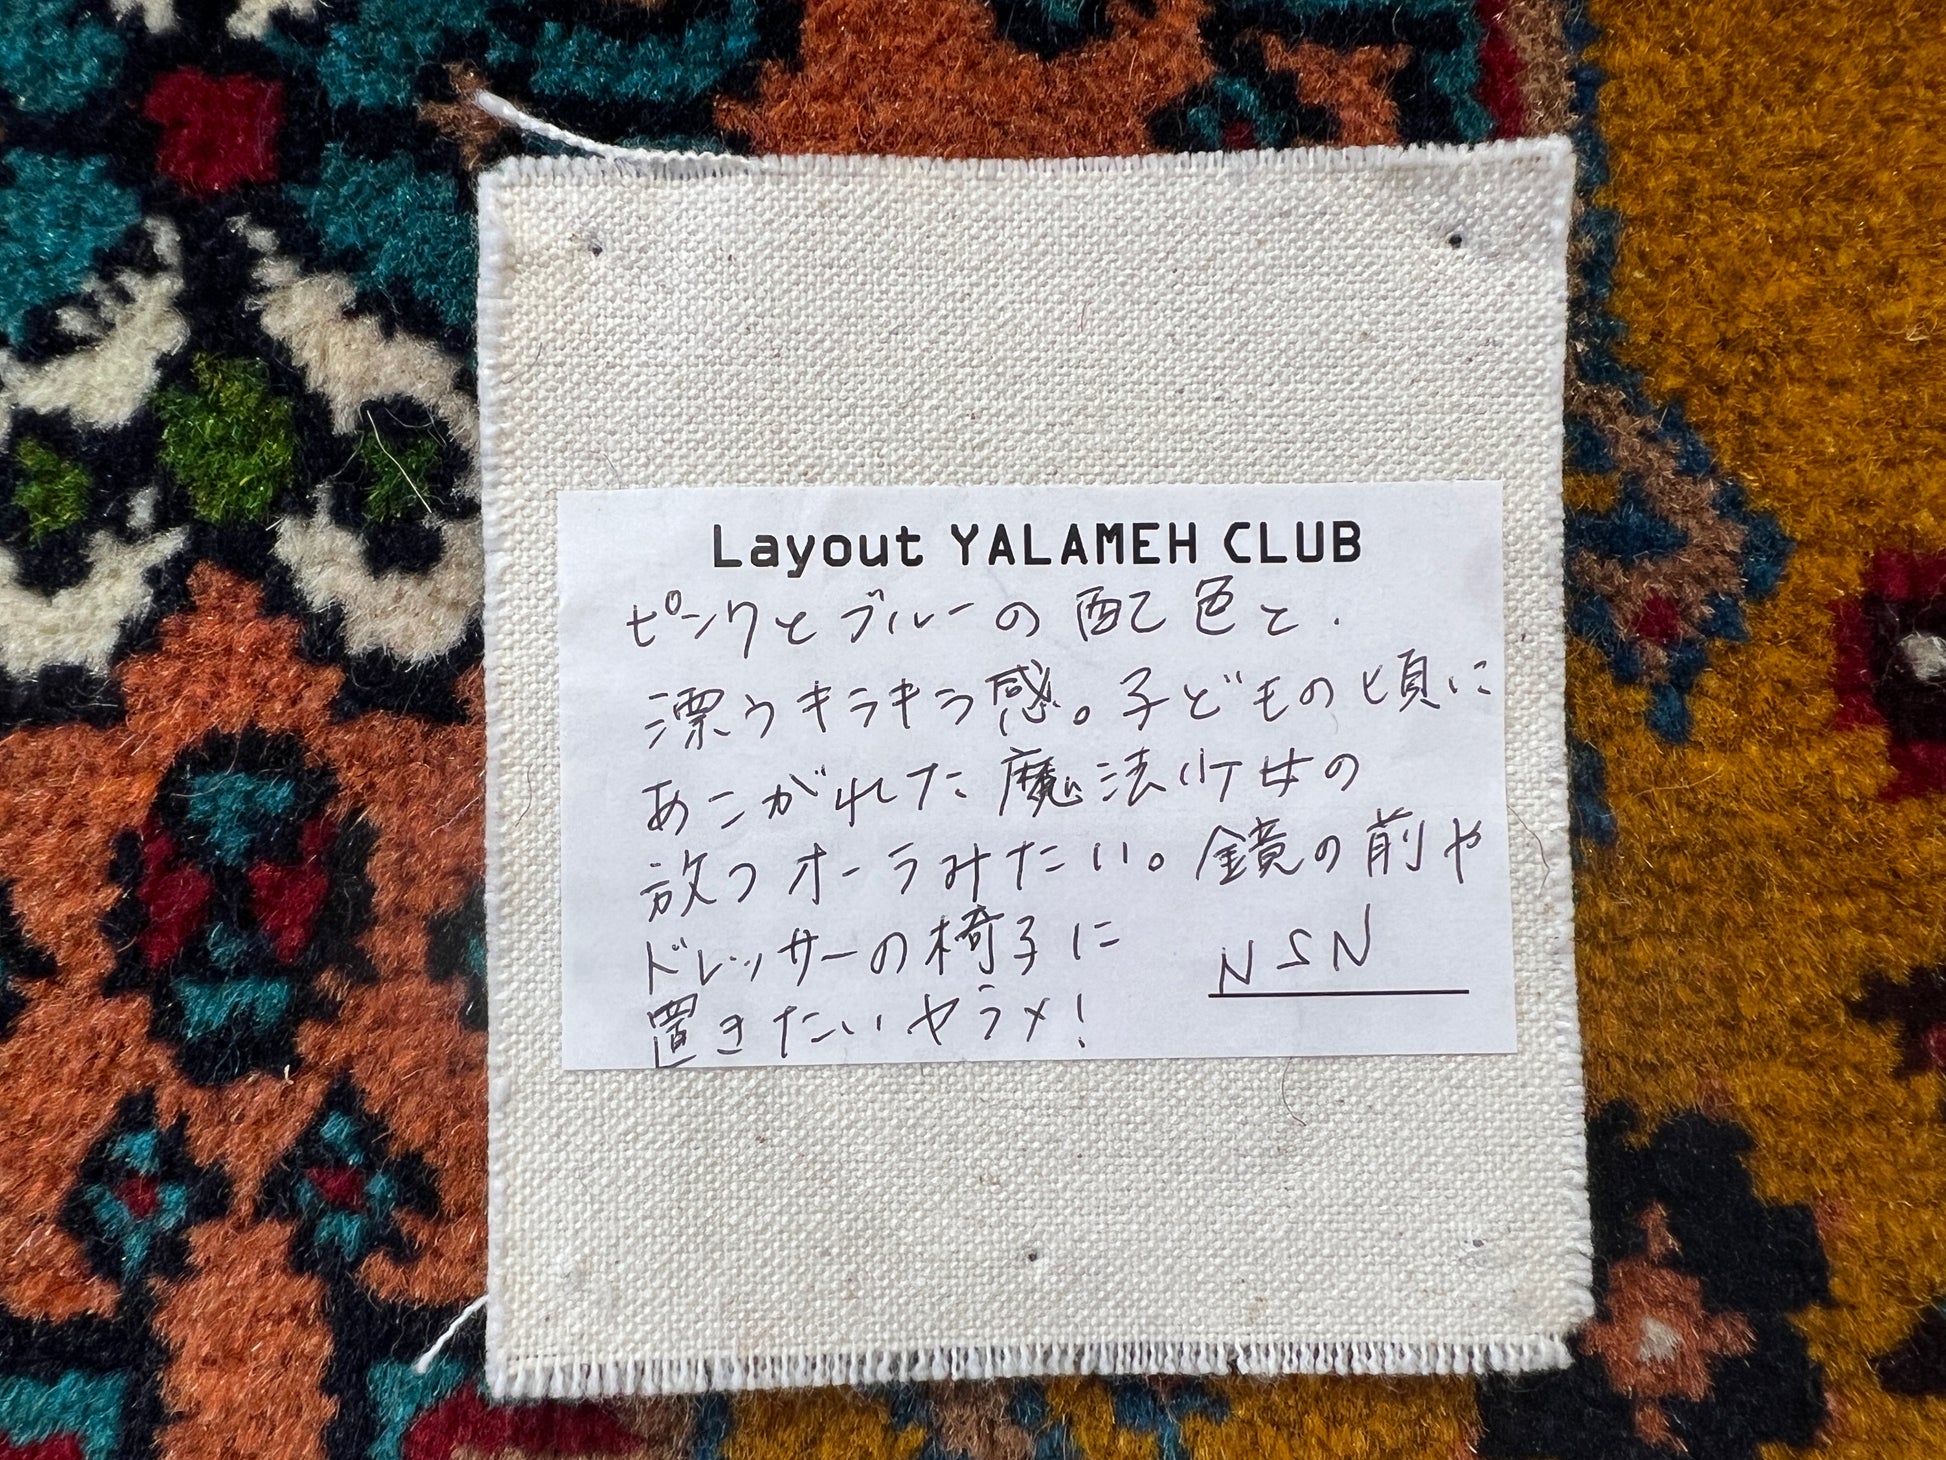 Layout YALAMEH CLUB
ピンクとブルーの配色と、
漂うキラキラ感。子どもの頃に
あこがれた魔法少女の
放つオーラみたい。鏡の前や
ドレッサーの椅子に
置きたいヤラメ!
NSN